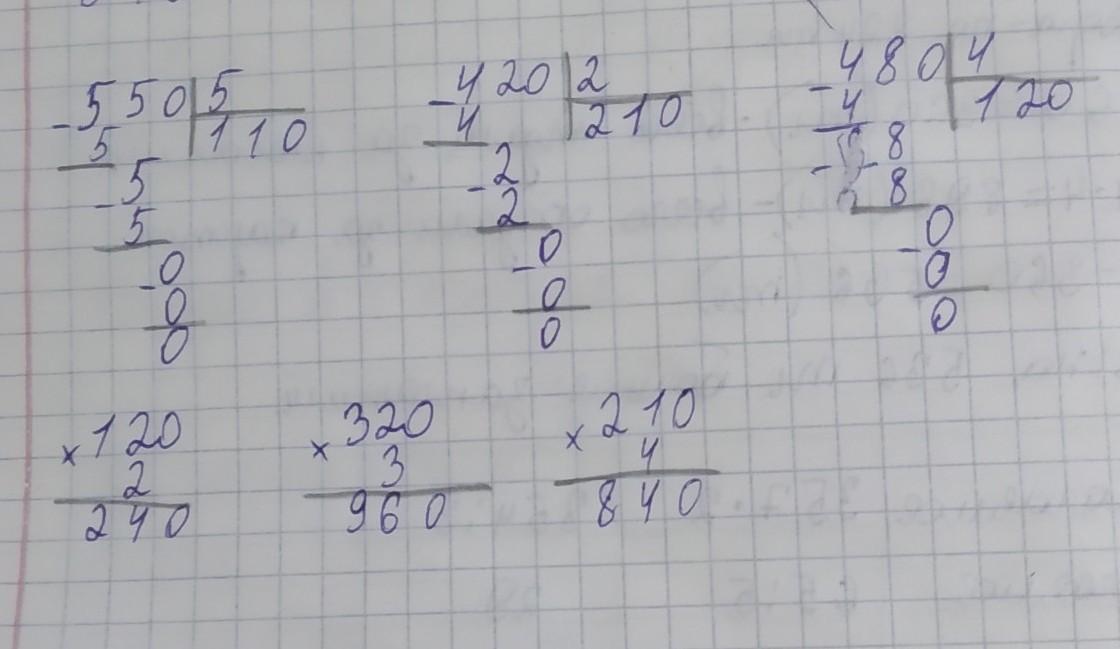 -550|5
5 110
-5
5
-0
0
0
-420|2
4 210
-2
2
-0
0
0
-480|4
4 120
- -8
8
-0
0
0
×120
2
240
×320
3
960
×210
4
840